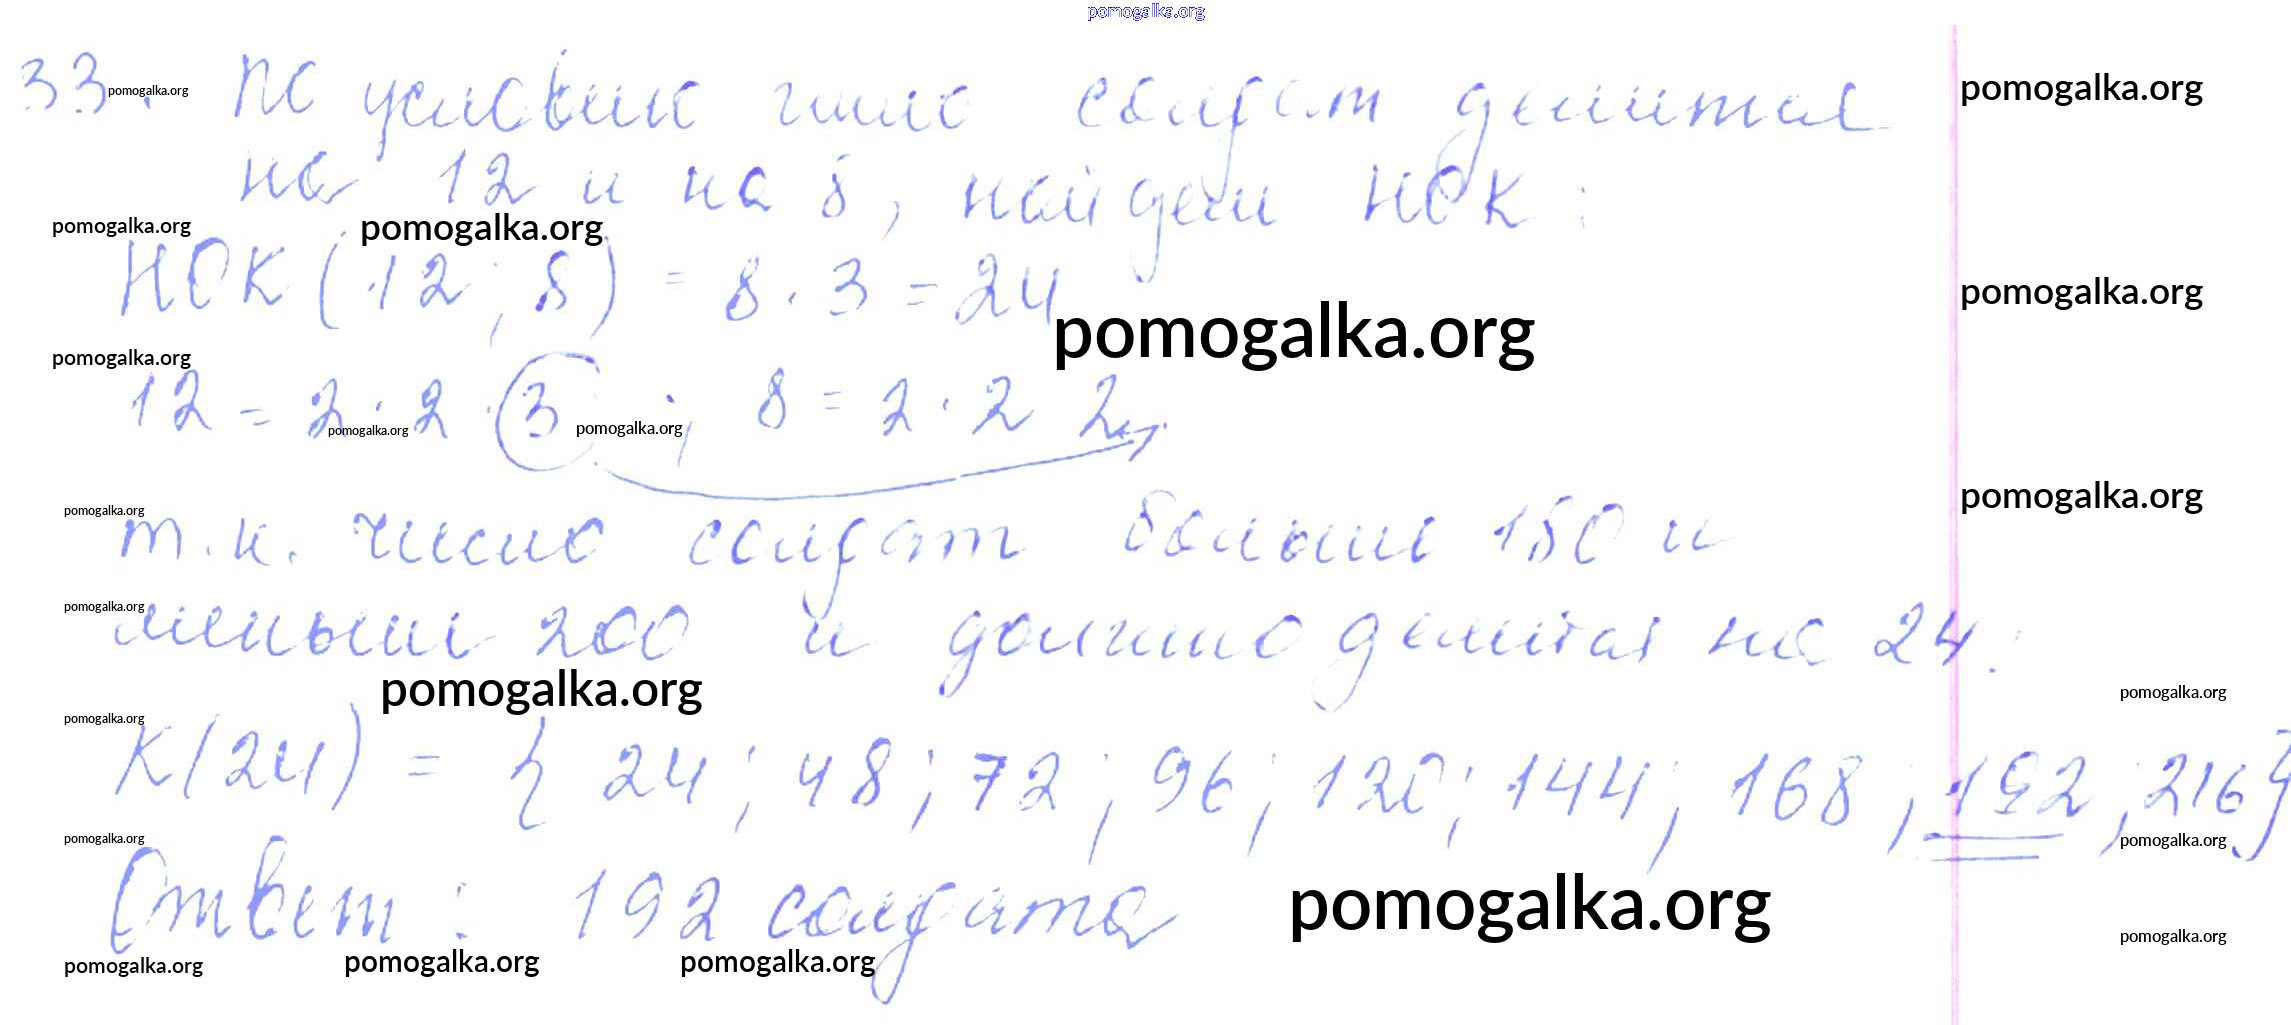 pomogalka.org
33. По условию число солдат делится pomogalka.org
pomogalka.org
на 12 и на 8, найдем НОК:
pomogalka.org pomogalka.org
НОК (12; 8) = 8 · 3 = 24 pomogalka.org
pomogalka.org
pomogalka.org
12 = 2 · 2 · 3 ; 8 = 2 · 2 2
pomogalka.org pomogalka.org
pomogalka.org pomogalka.org
т.к. число солдат больше 180 и
pomogalka.org
меньше 200 и должно делится на 24:
pomogalka.org pomogalka.org
pomogalka.org
К(24) = { 24; 48; 72; 96; 120; 144; 168; 192; 216}
pomogalka.org pomogalka.org
Ответ: 192 солдата pomogalka.org
pomogalka.org pomogalka.org pomogalka.org pomogalka.org